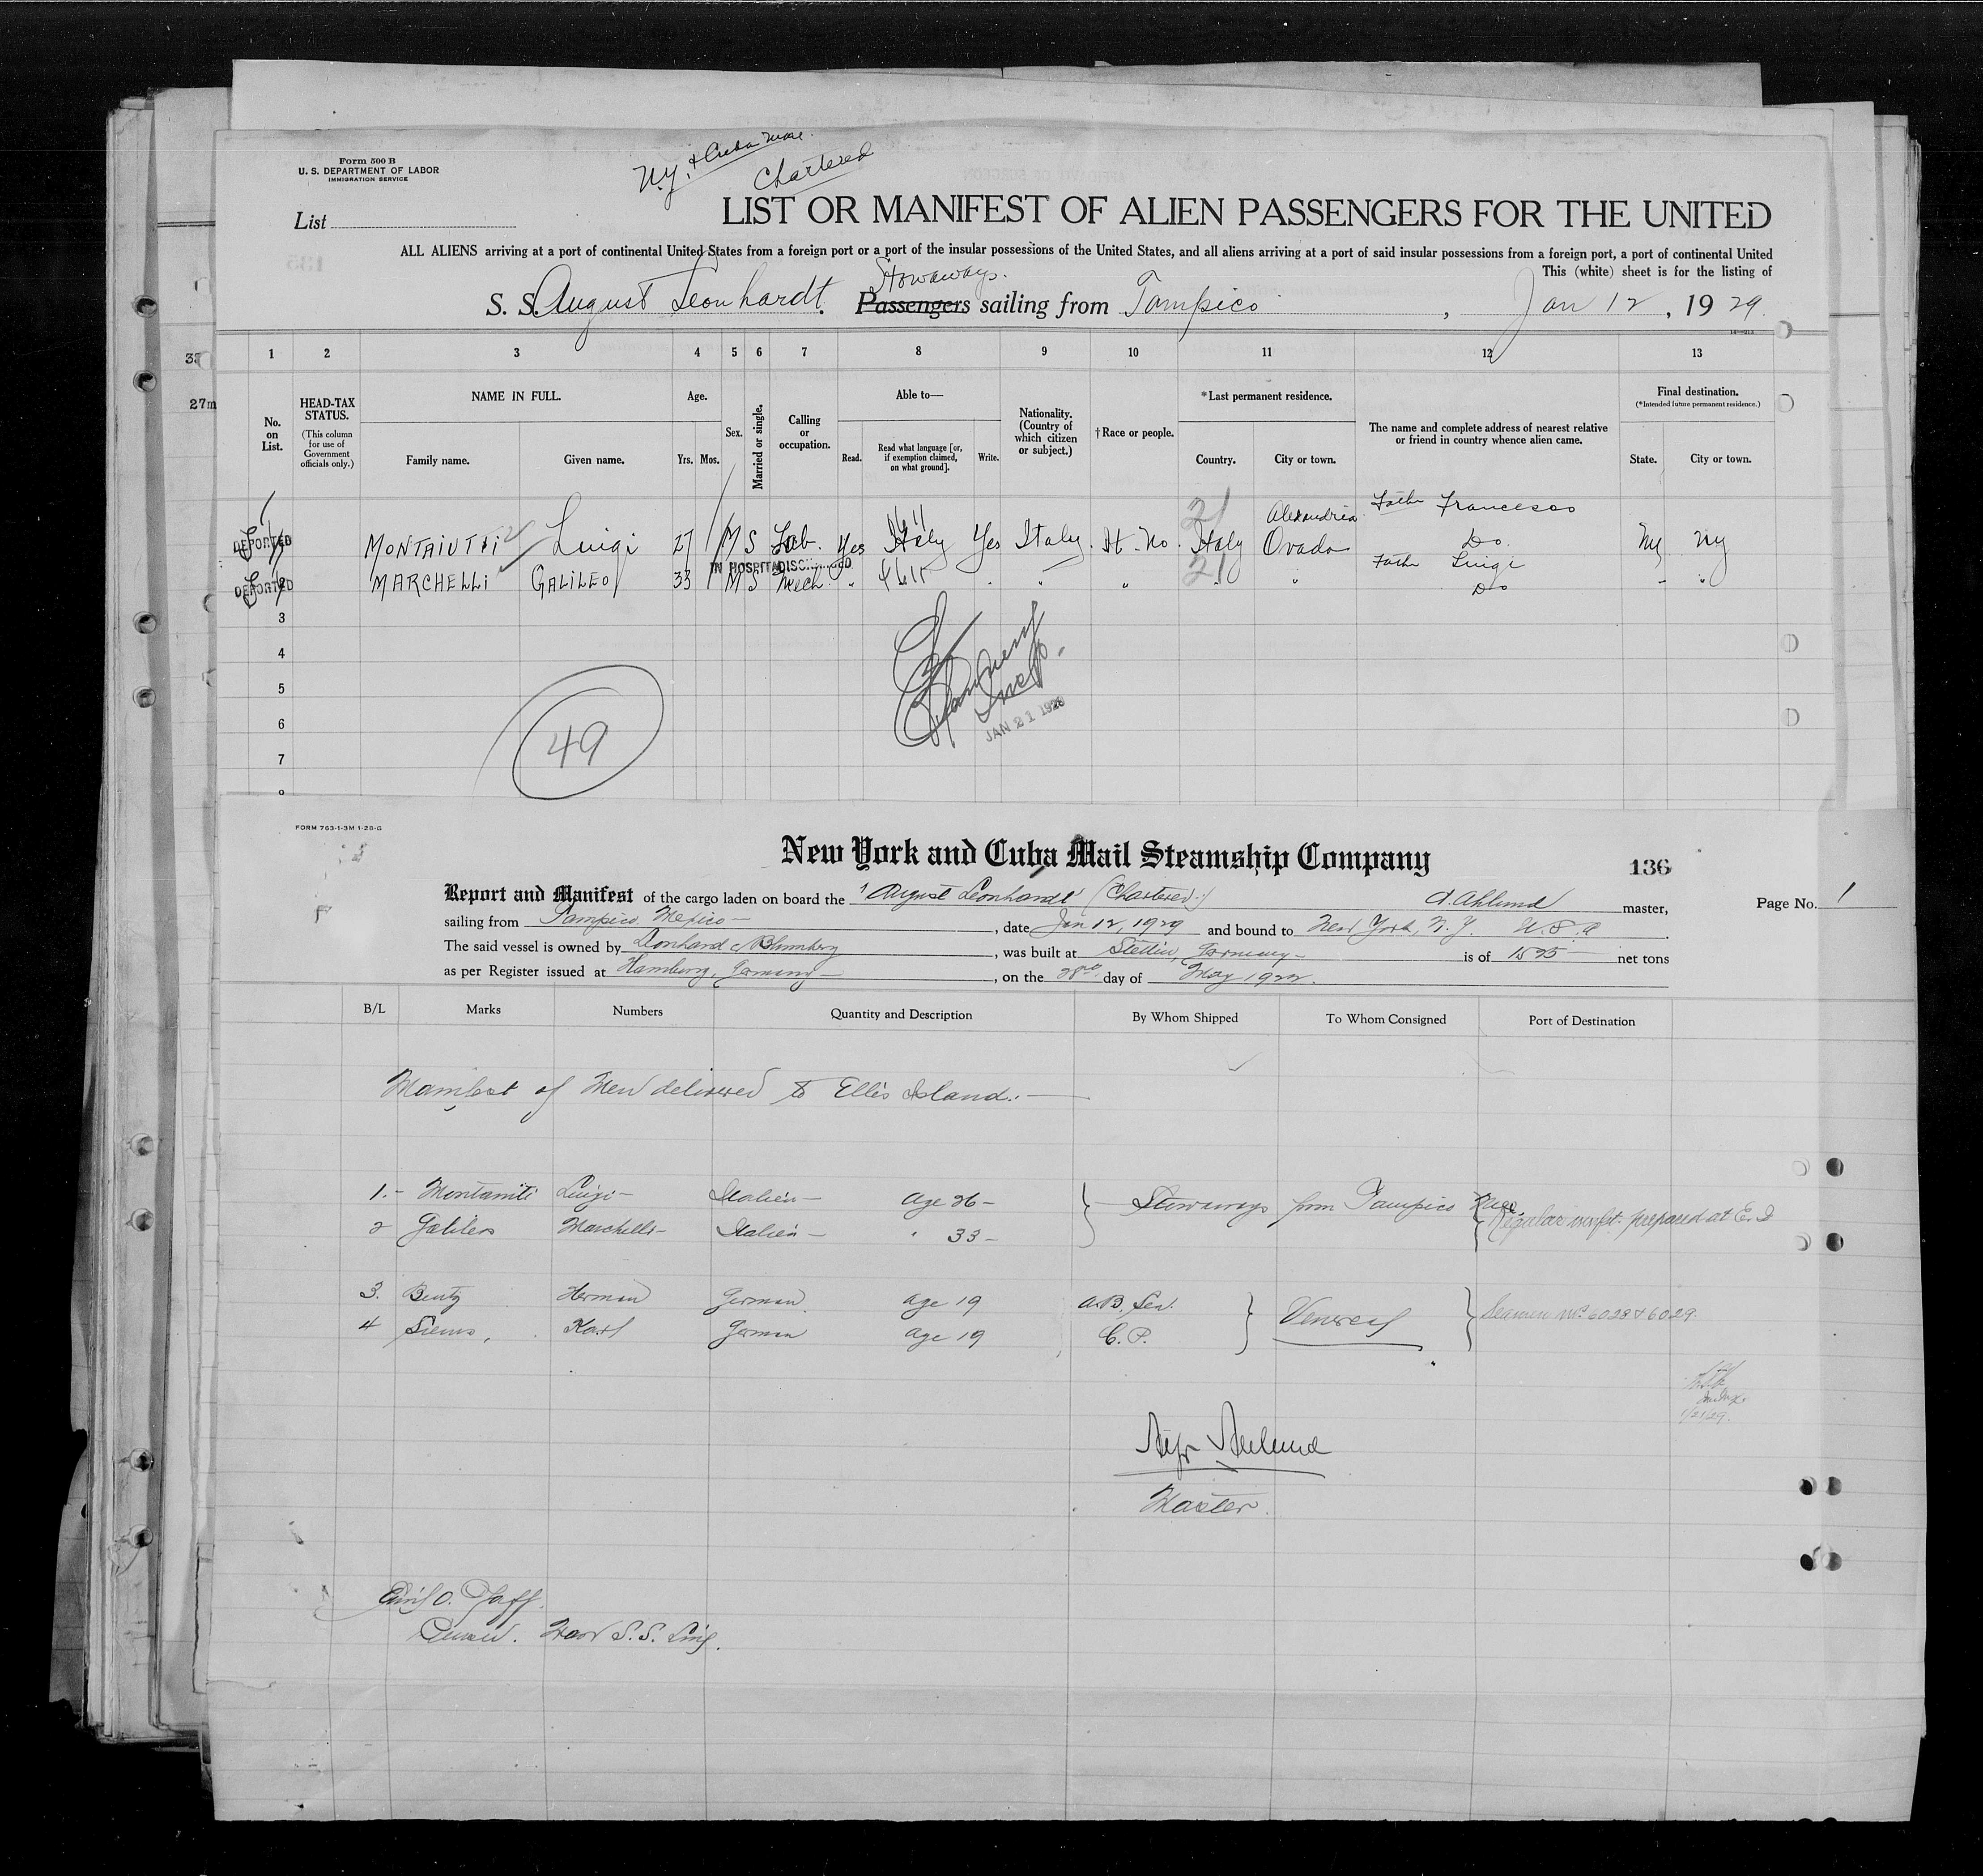 N.Y. & Cuba Mail
Chartered
Form 500 B
U. S. DEPARTMENT OF LABOR
IMMIGRATION SERVICE
List
LIST OR MANIFEST OF ALIEN PASSENGERS FOR THE UNITED
ALL ALIENS arriving at a port of continental United States from a foreign port or a port of the insular possessions of the United States, and all aliens arriving at a port of said insular possessions from a foreign port, a port of continental United
This (white) sheet is for the listing of
Stowaways.
S. S. August Leonhardt. Passengers sailing from Tampico, Jan 12, 1929.
1 2 3 4 5 6 7 8 9 10 11 12 13
No. on List.
HEAD-TAX STATUS.
(This column for use of Government officials only.)
NAME IN FULL.
Family name.
Given name.
Age.
Yrs. Mos.
Sex.
Married or single.
Calling or occupation.
Able to—
Read.
Read what language [or, if exemption claimed, on what ground].
Write.
Nationality. (Country of which citizen or subject.)
†Race or people.
*Last permanent residence.
Country.
City or town.
The name and complete address of nearest relative or friend in country whence alien came.
Final destination.
(*Intended future permanent residence.)
State.
City or town.
27m
21 Alexandria Father Francesco
DEPORTED MONTAIUTTI Luigi 27 M S Lab. Yes Italy Yes Italy. It. No. Italy Ovada Do. NY NY
IN HOSPITAL DISCHARGED
21 Father Luigi
DEPORTED MARCHELLI GALILEO 33 M S Mech. " " " " Do " "
3
4
5
6
7
8
49
Insp.
JAN 21 1928
FORM 763-1-3M 1-28-G
New York and Cuba Mail Steamship Company
136
Report and Manifest of the cargo laden on board the "August Leonhardt" (Chartered.) A. Ahlund master, Page No. 1
sailing from Tampico, Mexico — , date Jan 12, 1929 and bound to New York, N. Y. U. S. A.
The said vessel is owned by Leonhard & Blumberg , was built at Stettin, Germany — is of 1595 — net tons
as per Register issued at Hamburg, Germany — , on the 28th day of May 1922.
B/L Marks Numbers Quantity and Description By Whom Shipped To Whom Consigned Port of Destination
Manifest of Men delivered to Ellis Island. —
1. — Montaniti Luigi — Italien — Age 26 — } Stowaways from Tampico Mex. { Regular manfst. prepared at E. I
2 Galileo Marchelli — Italien — " 33 —
3. Bentz Herman German Age 19 A.B. Sea. } Venereal } Seamen Nos. 6028 & 6029.
4 Siems, Karl German Age 19 C. P.
1/21/29.
Ahlund
Master.
Emil O. Pfaff.
Ward S. S. Line.